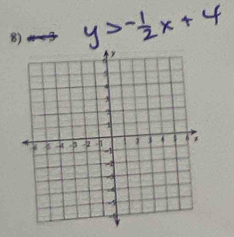 8) y > -1/2 x + 4
y
-6 -5 -4 -3 -2 -1 1 2 3 4 5 6 x